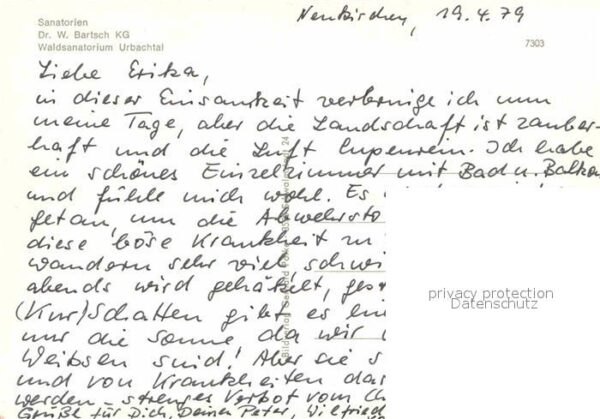 Sanatorien
Dr. W. Bartsch KG
Waldsanatorium Urbachtal
Neukirchen, 19.4.79
7303
Liebe Erika,
in dieser Einsamkeit verbringe ich nun
meine Tage, aber die Landschaft ist zauber-
haft und die Luft lupenrein. Ich habe
ein schönes Einzelzimmer mit Bad u. Balkon
und fühle mich wohl. Es
getan, um die Abwehrsto
diese böse Krankheit zu
wandern sehr viel, schwi
abends wird gehäkelt, ges
(Kur)Schatten gibt es
nur die Sonne da wir
Weibsen sind! Aber sie s
und von Krankheiten
werden - strenges Verbot vom Ch
Grüße für Dich, Deinen Peter, Wilfried
privacy protection
Datenschutz